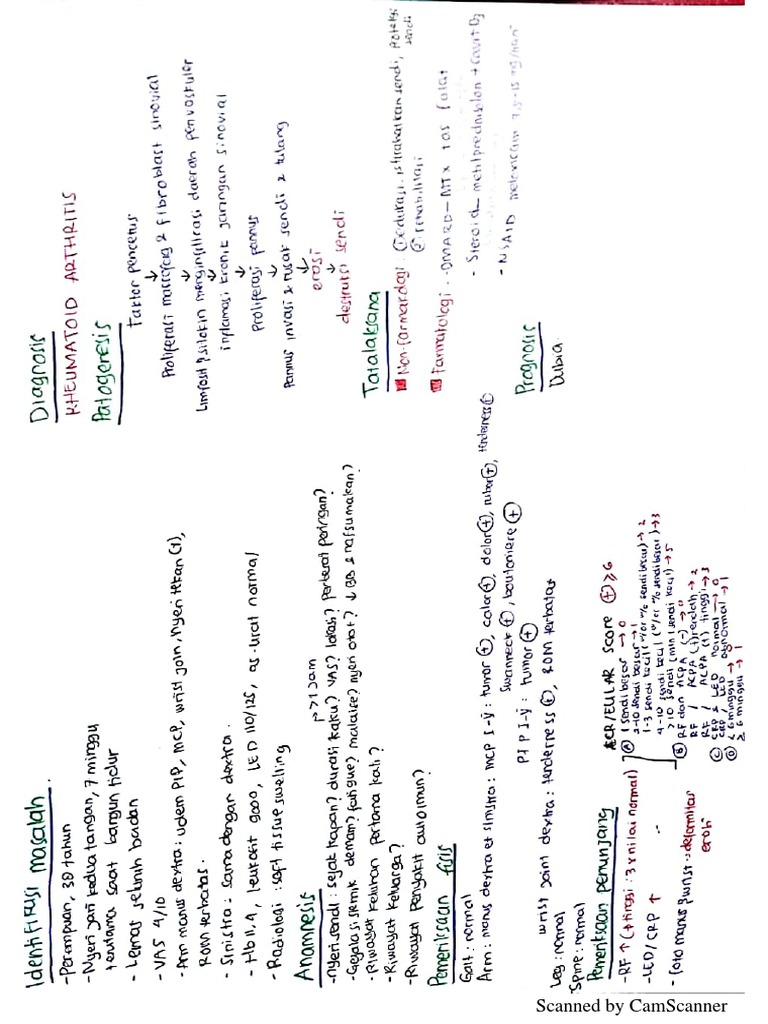 Identifikasi masalah
- Perempuan, 38 tahun
- Nyeri jari kedua tangan, 7 minggu
terutama saat bangun tidur
- Lemas seluruh badan
- VAS 4/10
- Arm manus dextra: udem PIP, MCP, wrist join, nyeri tekan (+),
ROM terbatas.
- Sinistra: sama dengan dextra.
- Hb 11,4, leukosit 9000, LED 110/125, as. urat normal
- Radiologi: soft tissue swelling
Anamnesis
→ >1 jam
- Nyeri sendi: sejak kapan? durasi kaku? VAS? lokasi? perberat peringan?
- Gejala sistemik demam? fatigue? malaise? nyeri otot? ↓ BB & nafsu makan?
- Riwayat keluhan pertama kali?
- Riwayat keluarga?
- Riwayat penyakit autoimun?
Pemeriksaan fisis
Gait: normal
Arm: manus dextra et sinistra: MCP I-V: tumor (+), calor (+), dolor (+), rubor (+), tenderness (+)
Swanneck (+), boutoniere (+)
PIP I-V: tumor (+)
wrist joint dextra: tenderness (+), ROM terbatas
Leg: normal
Spine: normal
Pemeriksaan penunjang
- RF ↑ (+ tinggi: 3 x nilai normal)
- LED/CRP ↑
- foto manus & wrist → deformitas
erosi
ACR/EULAR score (+) ≥ 6
(A) 1 sendi besar → 0
2-10 sendi besar → 1
1-3 sendi kecil (+/ % sendi besar) → 2
4-10 sendi kecil (+/ % sendi besar) → 3
>10 sendi (min 1 sendi kecil) → 5
(B) RF dan ACPA (-) → 0
RF / ACPA (+) rendah → 2
RF / ACPA (+) tinggi → 3
(C) CRP & LED normal → 0
CRP / LED abnormal → 1
(D) < 6 minggu → 0
≥ 6 minggu → 1
Diagnosis
RHEUMATOID ARTHRITIS
Patogenesis
Faktor pencetus
↓
Proliferasi makrofag & fibroblast sinovial
↓
Limfosit & sitokin menginfiltrasi daerah perivaskuler
↓
inflamasi kronik jaringan sinovial
↓
Proliferasi pannus
↓
Pannus invasi & rusak sendi & tulang
↓
erosi
↓
destruksi sendi
Tatalaksana
Non-farmakologi: edukasi, istirahatkan sendi, proteksi sendi
rehabilitasi
Farmakologi: - DMARD - MTX + as folat
- Steroid metilprednisolon + Cavit D3
- NSAID meloxicam 7,5-15 mg/hari
Prognosis
Dubia